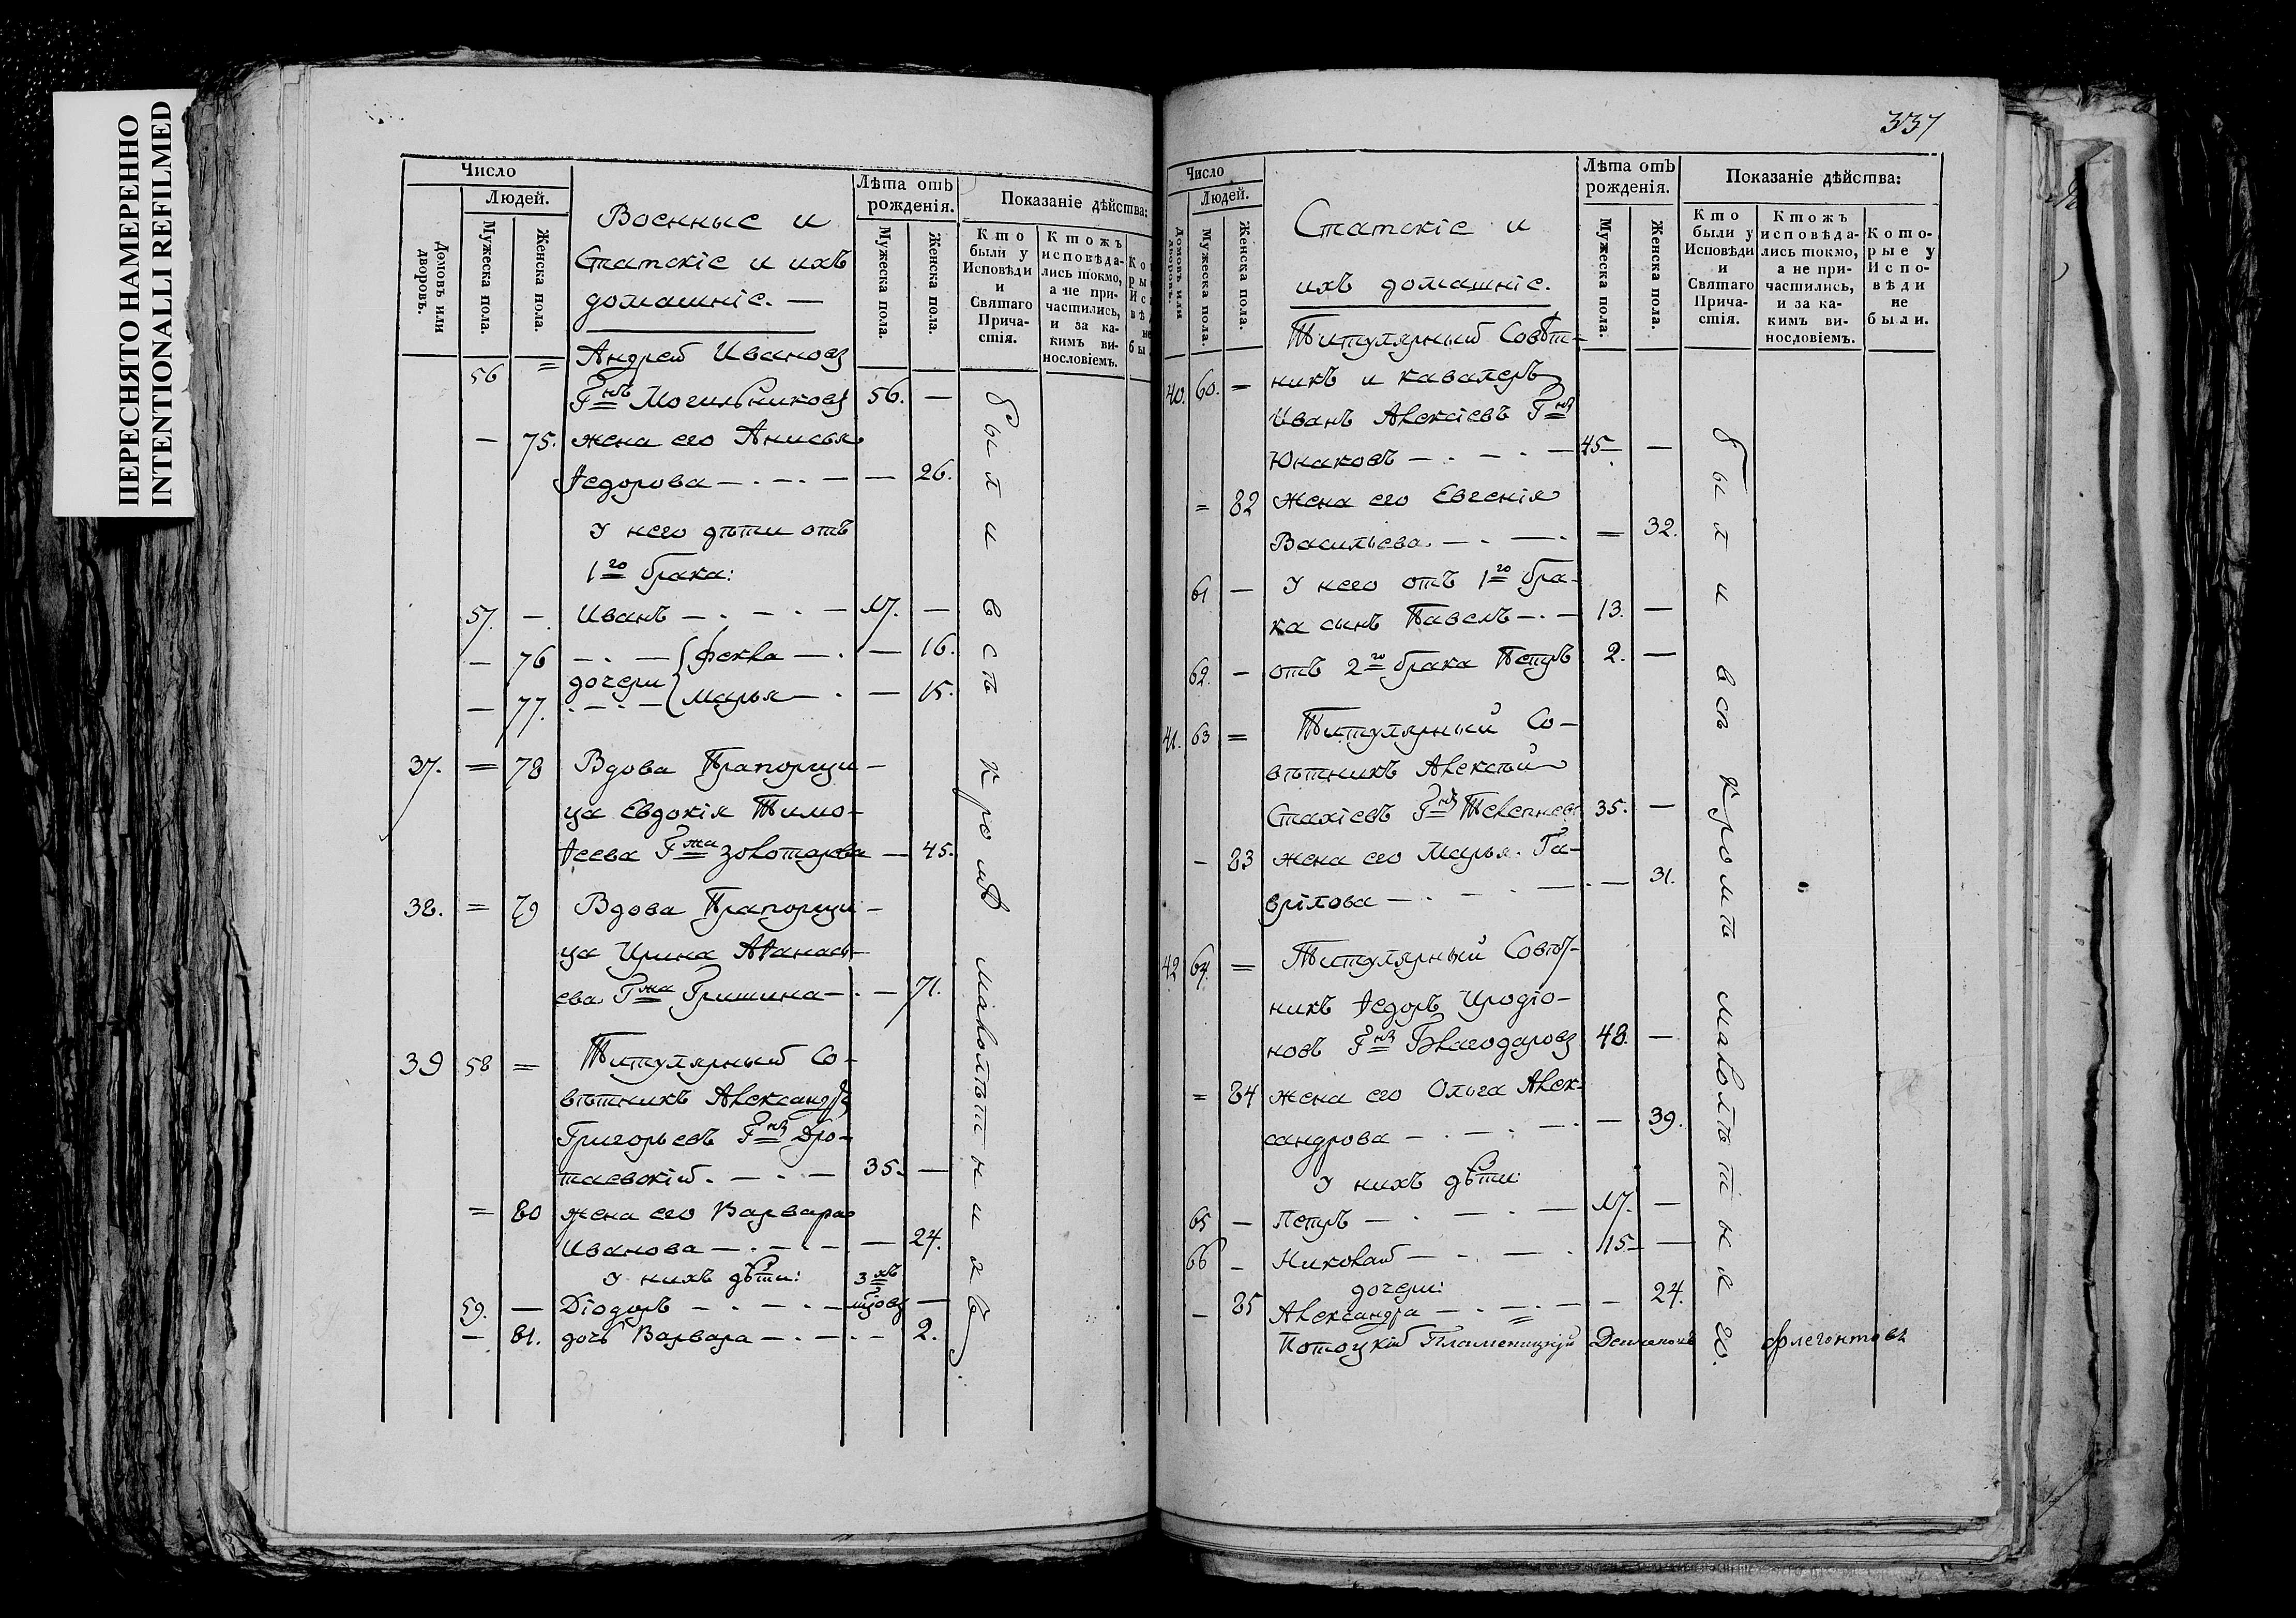 ПЕРЕСНЯТО НАМЕРЕННО
INTENTIONALLI REFILMED
Число
Людей.
Домовъ или дворовъ.
Мужеска пола.
Женска пола.
Военные и
Статскіе и ихъ
домашніе. —
Лѣта отъ рожденія.
Мужеска пола.
Женска пола.
Показаніе дѣйства:
Кто были у Исповѣди и Святаго Причастія.
Ктожъ исповѣдались токмо, а не причастились, и за какимъ винословіемъ.
56 = Андрей Ивановъ
Г=нъ Могильниковъ 56. —
— 75. жена его Анисья
Ѳедорова — . — . — — 26.
У него дѣти отъ
1=го брака:
57. — Иванъ — . — . — 17. —
— 76 — . — { Фекла — . — 16.
дочери
— 77. . — . — { Марья — . — 15.
37. = 78 Вдова Прапорщи-
ца Евдокія Тимо-
ѳеева Г=жа Золотарева — 45.
38. = 79 Вдова Прапорщи-
ца Ирина Аѳанась-
ева Г=жа Гришина — . — 71.
39 58 = Титулярный Со-
вѣтникъ Александръ
Григорьевъ Г=нъ Дро-
таевскій . — . — 35. —
= 80 жена его Варвара
Иванова — . — . — — 24.
У нихъ дѣти: 3=хъ
59. — Діодоръ — . — . — мцовъ —
— 81. дочь Варвара — . — . — 2.
были всѣ кромѣ малолѣтнихъ.
337
Число
Людей.
Домовъ или дворовъ.
Мужеска пола.
Женска пола.
Статскіе и
ихъ домашніе.
Лѣта отъ рожденія.
Мужеска пола.
Женска пола.
Показаніе дѣйства:
Кто были у Исповѣди и Святаго Причастія.
Ктожъ исповѣдались токмо, а не причастились, и за какимъ винословіемъ.
Которые у Исповѣди не были.
Титулярный Совѣт-
40. 60. = никъ и кавалеръ
Иванъ Алексіевъ Г=нъ
Юнаковъ — . — . — 45. —
= 82 жена его Евгенія
Васильева. — . — . = 32.
61 — У него отъ 1=го бра-
ка сынъ Павелъ — . — 13. —
62. — отъ 2=го брака Петръ 2. —
41. 63 = Титулярный Со-
вѣтникъ Алексѣй
Стахіевъ Г=нъ 35. —
— 83 жена его Марья Га-
врілова — . — . — . — 31.
42 64. = Титулярный Совѣт-
никъ Ѳедоръ Иродіо-
новъ Г=нъ Благодаровъ 48. —
= 84 жена его Ольга Алек-
сандрова — . — . — . — 39.
У нихъ дѣти:
65 — Петръ — . — . — 17. —
66 — Николай — . — . 15. —
дочери:
— 85 Александра — . — . — — 24.
были всѣ кромѣ малолѣтняго.
Потоцкій Пламеницкій Флегонтовъ